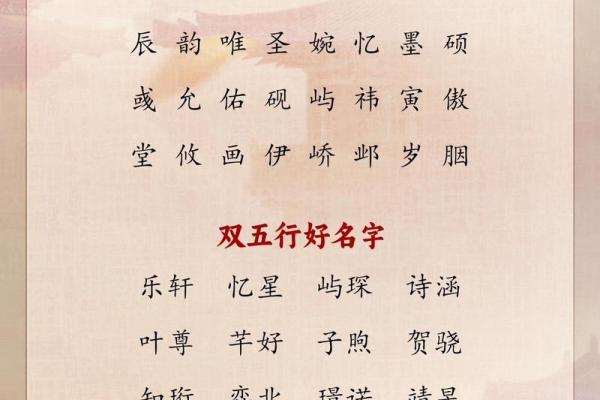 辰 韵 唯 圣 婉 忆 墨 硕
彧 允 佑 砚 屿 祎 寅 傲
堂 攸 画 伊 峤 邺 岁 胭
双五行好名字
乐轩 忆星 屿琛 诗涵
叶尊 芊好 子煦 贺骁
知珩 奕北 璟诺 靖昂